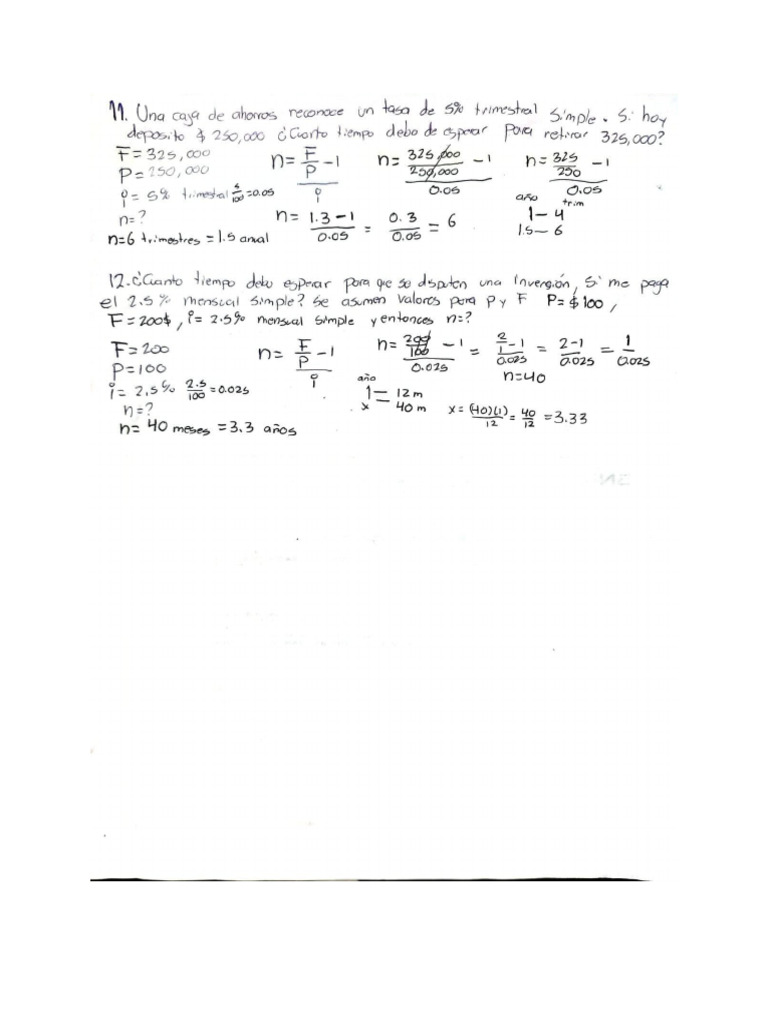 11. Una caja de ahorros reconoce un tasa de 5% trimestral simple. Si hoy
deposito $ 250,000 ¿Cuanto tiempo debo de esperar para retirar 325,000?
F=325,000
P=250,000
i=5% trimestral 5/100=0.05
n=?
n=6 trimestres = 1.5 anual
n= F/P -1 / i
n= 325,000/250,000 -1 / 0.05
n= 325/250 -1 / 0.05
n= 1.3-1 / 0.05 = 0.3 / 0.05 = 6
año trim
1 — 4
1.5 — 6
12. ¿Cuanto tiempo debo esperar para que se dupliten una Inverción, Si me paga
el 2.5% mensual simple? Se asumen valores para P y F P=$100,
F=200$, i=2.5% mensual simple y entonces n=?
F=200
P=100
i=2.5% 2.5/100=0.025
n=?
n=40 meses =3.3 años
n= F/P -1 / i
n= 200/100 -1 / 0.025 = 2/1 -1 / 0.025 = 2-1 / 0.025 = 1 / 0.025
n=40
año
1 = 12 m
x 40 m
x= (40)(1)/12 = 40/12 =3.33